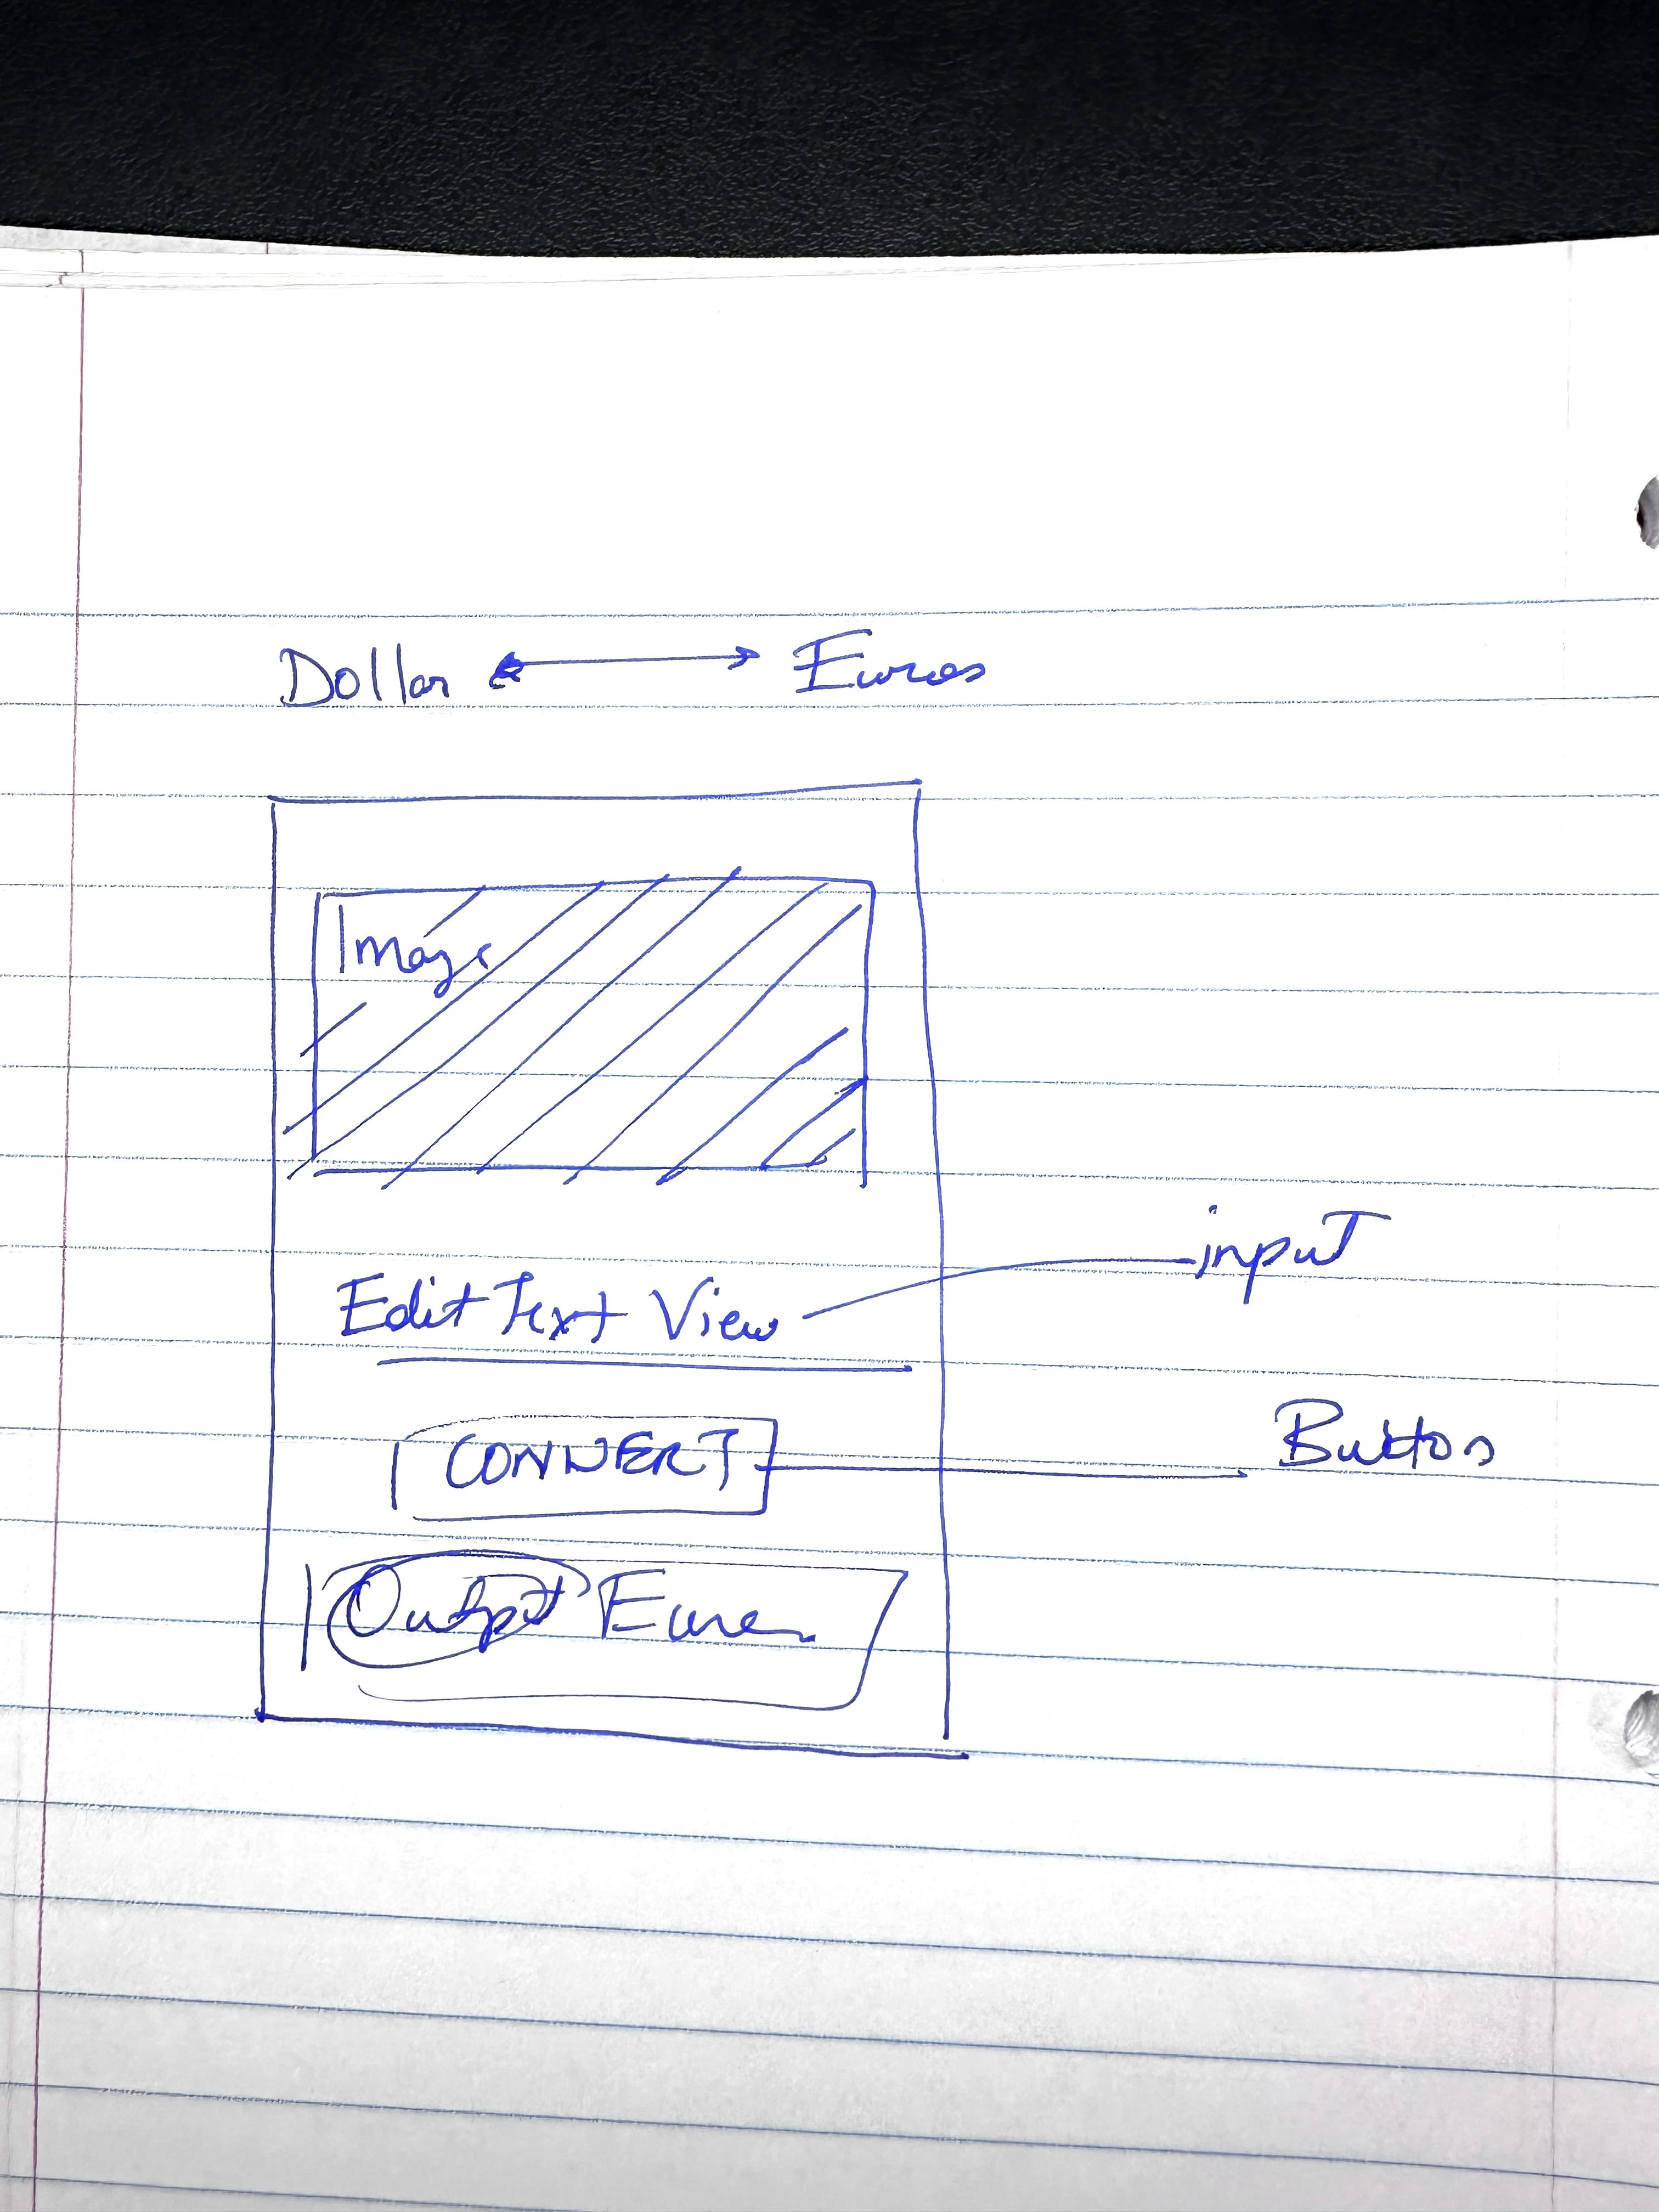 Dollar ⟷ Euros
Image
input
Edit Text View
CONVERT
Button
Output Euro